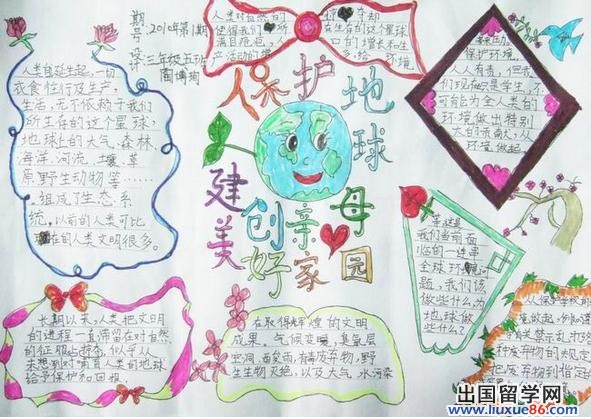 期号：2010年第1期
三年级五班
保护地球母亲
创建美好家园
人类自诞生起，一切
衣食住行及生产，
生活，无不依赖于我们
所生存的这个星球，
地球上的大气、森林、
海洋、河流、土壤、草
原、野生动物等……
组成了生态系
统。以前的人类可比
现在的人类文明很多。
人类对自然的
使得我们
满目疮疤，
产活动的增
夺却
在生存的这个星球
口的增长和生
环境
保护环境，
人人有责，但我
们现在只是学生，不
可能为全人类的
环境做出特别
大的贡献，从小
环境做起。
等这是
我们当前面
临的一连串
全球环境问
题，我们该
做些什么，为
地球做
些什么？
长期以来，人类把文明
的进程一直滞留在对自然
的征服上，似乎从
未想到对哺育人类的地球
给予保护和回报。
在取得辉煌的文明
成果，气候变暖，臭氧层
空洞，酸实雨，有毒废弃物，野
生生物灭绝，以及大气、水污染
从保护学校的
境做起，例如遵
有关禁止乱
种废弃物的规定
把废弃物到指定
出国留学网
www.liuxue86.com